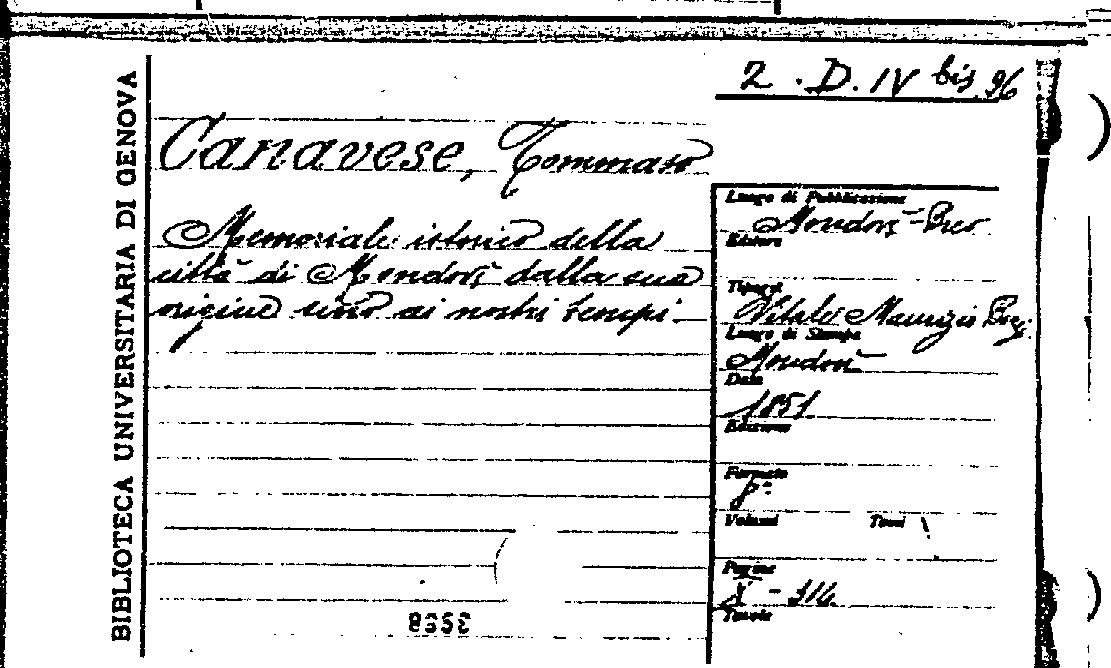 2 . D. IV bis 96
BIBLIOTECA UNIVERSITARIA DI GENOVA
Canavese, Tommaso
Memoriale istorico della
città di Mondovì dalla sua
origine sino ai nostri tempi.
Luogo di Pubblicazione
Mondovì-Breo
Editore
Tipogr.
Vitale Maurizio
Luogo di Stampa
Mondovì
Data
1851
Edizione
Formato
8°
Volumi Tomi
Pagine
X - 314
Tavole